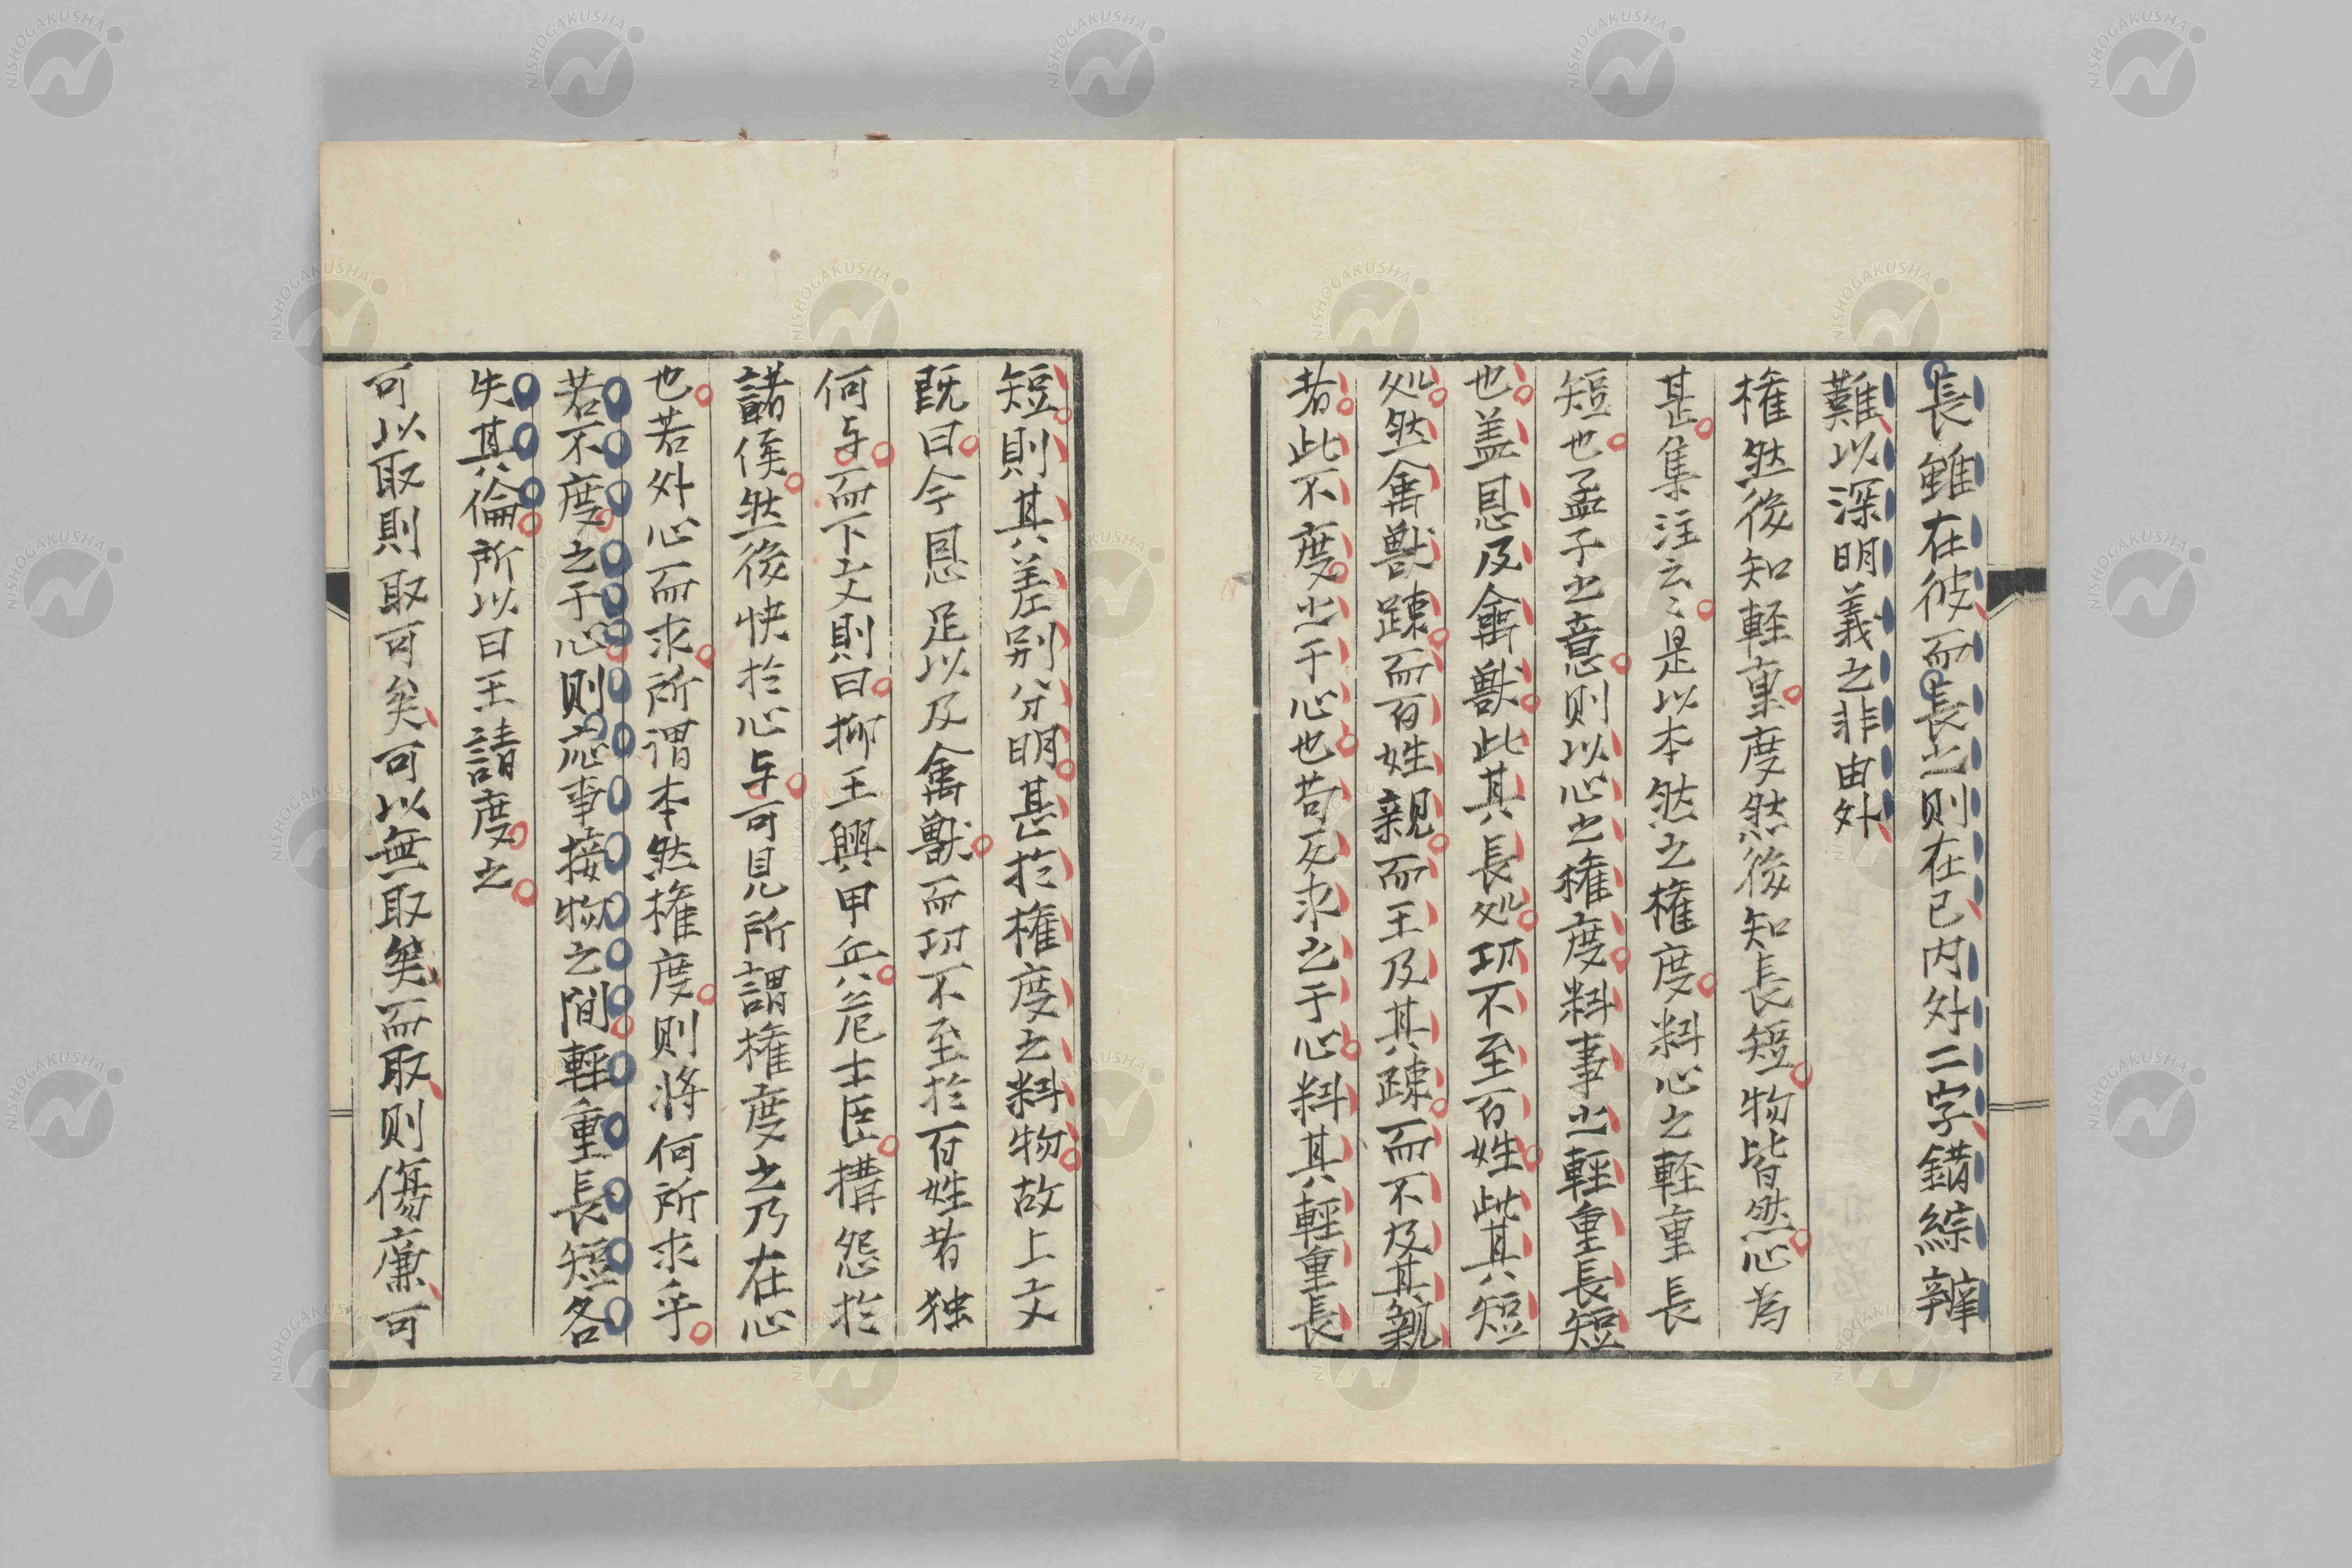 長雖在彼而長之則在己内外二字錯綜辨
難以深明義之非由外
権然後知軽重度然後知長短物皆然心為
甚集注云〻是以本然之権度料心之軽重長
短也孟子之意則以心之権度料事之輕重長短
也盖恩及禽獸此其長処功不至百姓此其短
処然禽獸踈而百姓親而王及其踈而不及其親
者此不度之于心也苟反求之于心料其輕重長
短則其差别分明甚於権度之料物故上文
既曰今恩足以及禽獸而功不至於百姓者独
何与而下文則曰抑王興甲兵危士臣搆怨於
諸侯然後快於心与可見所謂権度之乃在心
也若外心而求所謂本然権度则将何所求乎
若不度之于心则應事接物之間輕重長短各
失其倫所以曰王請度之
可以取則取可矣可以無取矣而取则傷廉可
NISHOGAKUSHA